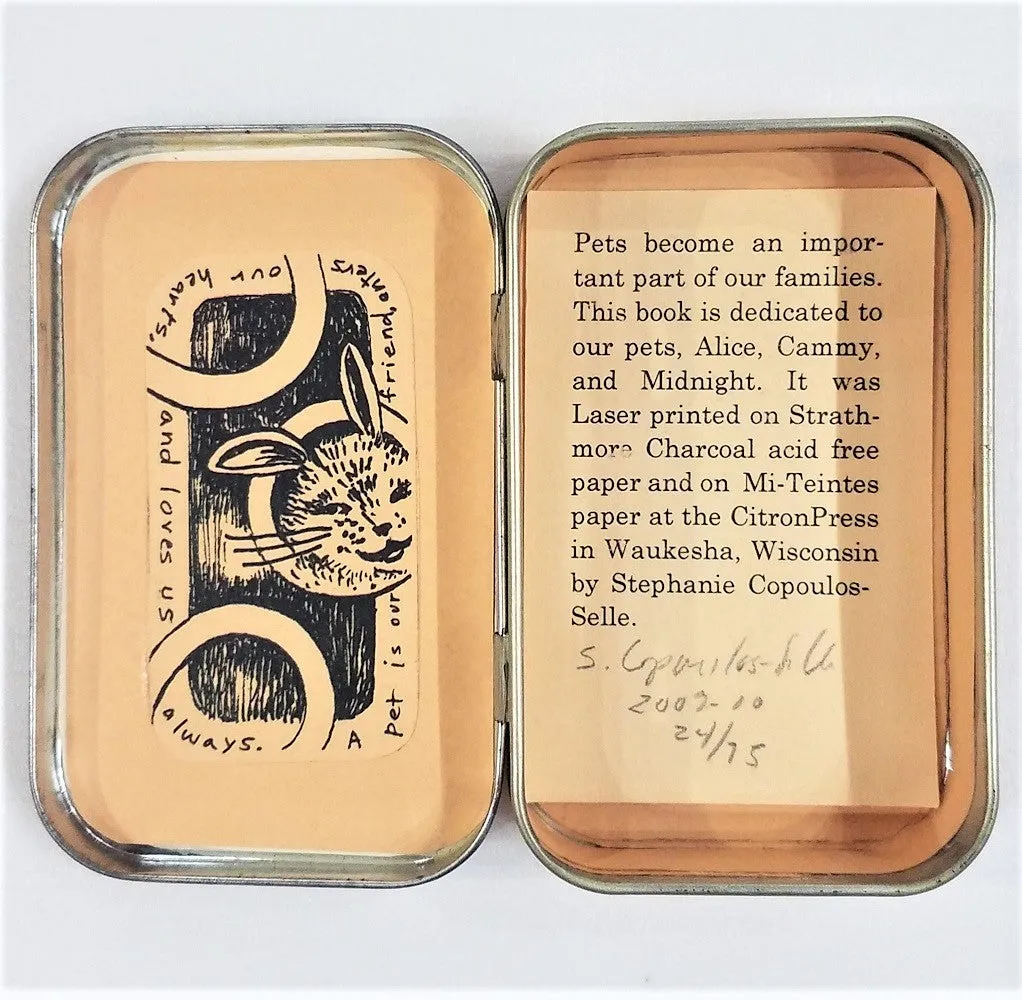 A pet is our
friend, enters
our hearts.
and loves us
always.
Pets become an impor-
tant part of our families.
This book is dedicated to
our pets, Alice, Cammy,
and Midnight. It was
Laser printed on Strath-
more Charcoal acid free
paper and on Mi-Teintes
paper at the CitronPress
in Waukesha, Wisconsin
by Stephanie Copoulos-
Selle.
S. Copoulos-Selle
2009-10
24/75